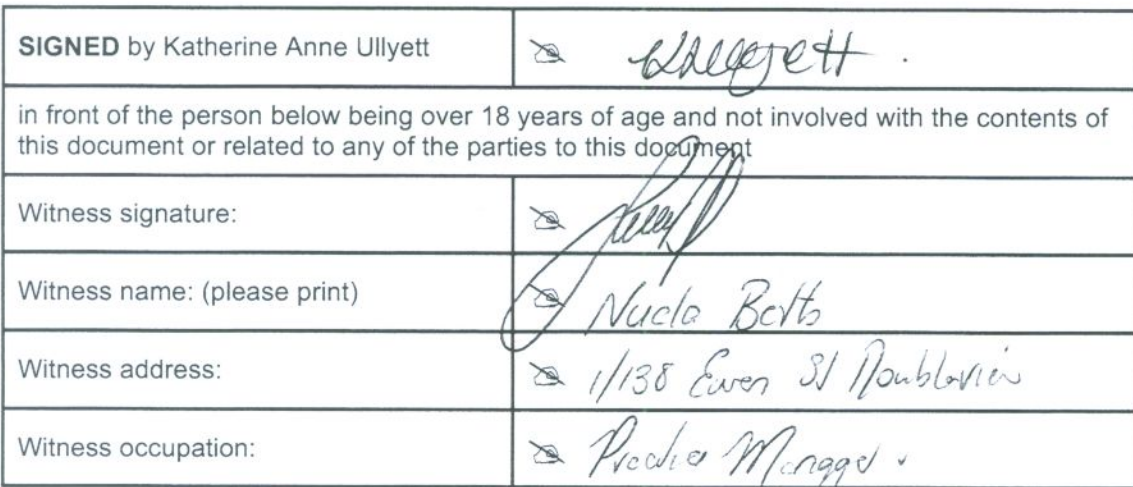 SIGNED by Katherine Anne Ullyett
in front of the person below being over 18 years of age and not involved with the contents of
this document or related to any of the parties to this document
Witness signature:
Witness name: (please print)
Betts
Witness address:
1/138 Ewen St
Witness occupation:
Manager